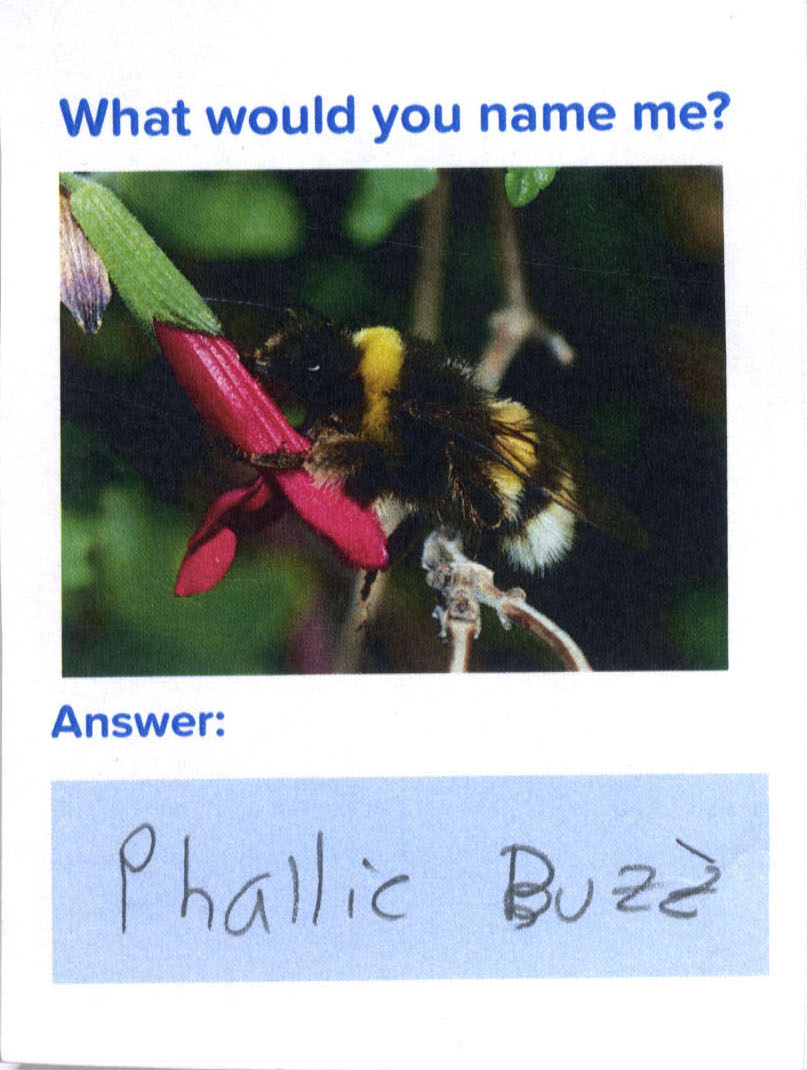 What would you name me?
Answer:
Phallic Buzz